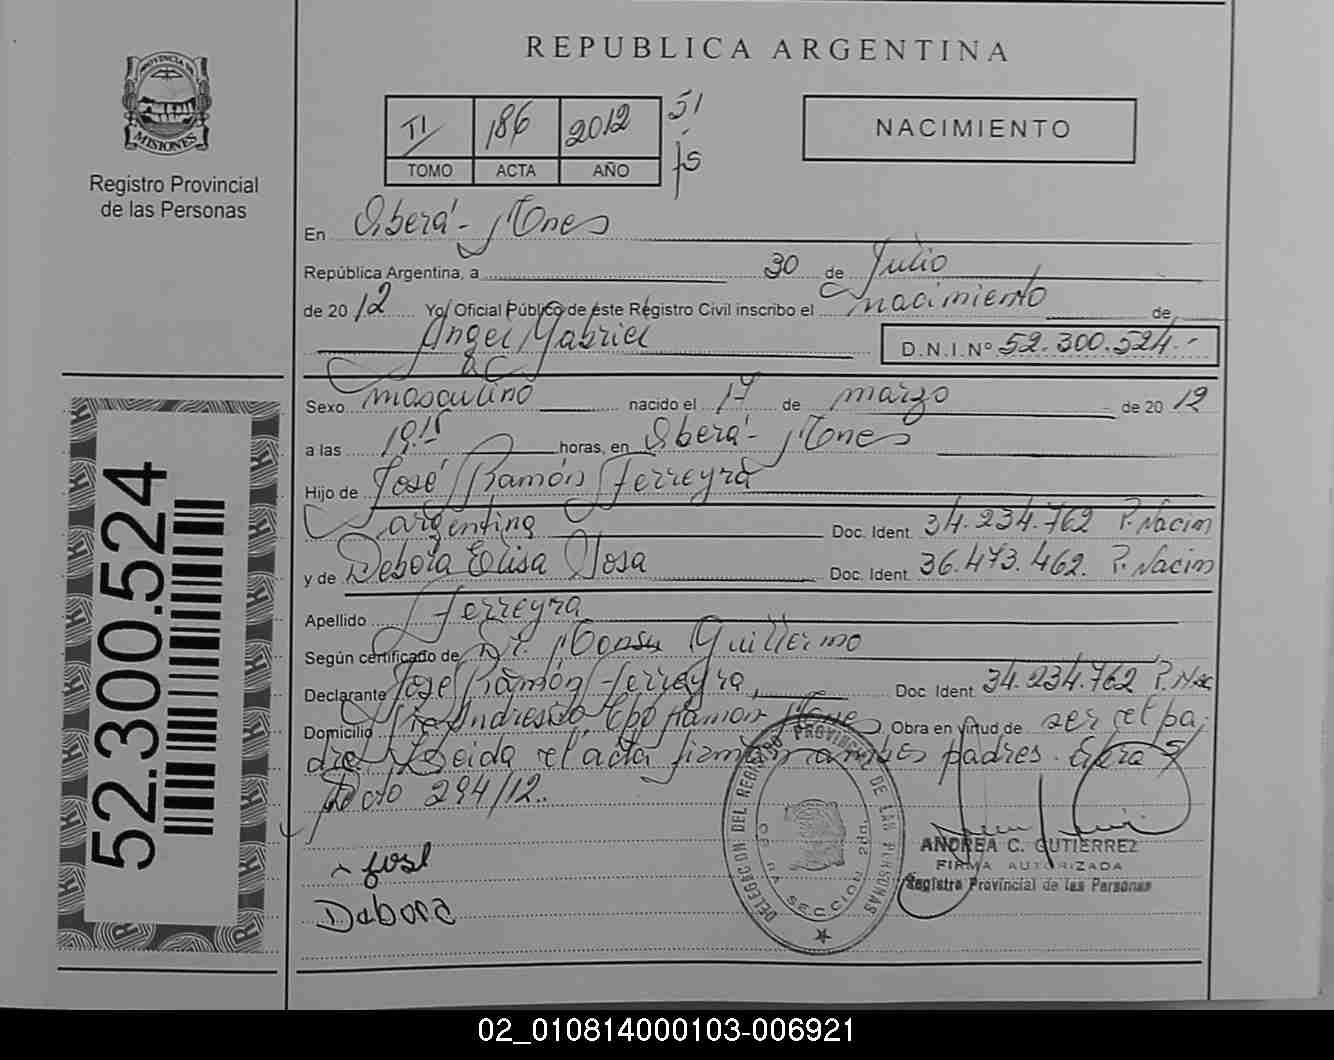 PROVINCIA DE
MISIONES
Registro Provincial
de las Personas
52.300.524
REPUBLICA ARGENTINA
II 186 2012 51
TOMO ACTA AÑO
NACIMIENTO
En Oberá - Mnes
República Argentina, a 30 de Julio
de 2012 Yo, Oficial Público de este Registro Civil inscribo el nacimiento de
Angel Gabriel D.N.I.Nº 52.300.524.-
Sexo masculino nacido el 17 de marzo de 2012
a las 19.15 horas, en Oberá - Mnes
Hijo de José Ramón Ferreyra
argentina Doc. Ident. 34.234.762 P. Nacim
y de Debora Elisa Doc. Ident. 36.473.462. P. Nacim
Apellido Ferreyra
Según certificado de Dr. Guillermo
Declarante José Ramón Ferreyra, Doc. Ident. 34.234.762 P. Nac
Domicilio Ramón Mnes Obra en virtud de ser el pa-
dre. Leida el acta firman padres.
Dcto 294/12.
José
Debora
DELEGACION DEL REGISTRO PROVINCIAL DE LAS PERSONAS
SECCION 2da.
ANDREA C. GUTIERREZ
FIRMA AUTORIZADA
Registro Provincial de las Personas
02_010814000103-006921